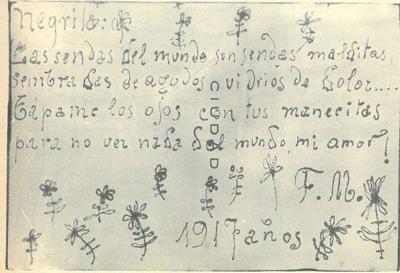 Negrita:
Las sendas del mundo son sendas malditas,
sembradas de agudos vidrios de dolor....
Tápame los ojos con tus manecitas
para no ver nada del mundo, mi amor!
F. M.
1917 años